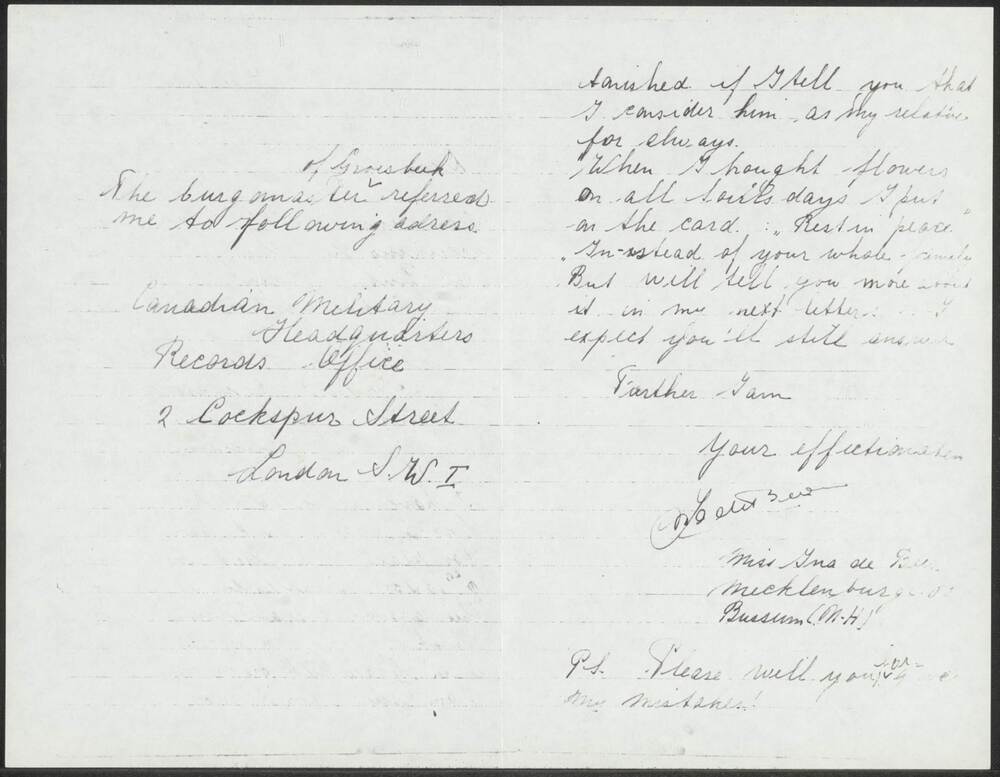 of Groesbeek
The burgomaster referred
me to following adress.
Canadian Military
Headquarters
Records Office
2 Cockspur Street
London S.W.I
tonished if I tell you that
I consider him as my relative
for always.
When I bought flowers
on all souls days I put
on the card : „Rest in peace"
„In-stead of your whole family
But will tell you more about
it in my next letter. I
expect you'll still answer
Farther I am
Your effectionately
Miss Ina de
Mecklenburg
Bussum (N-H)
P.S. Please will you for-give
my mistakes!